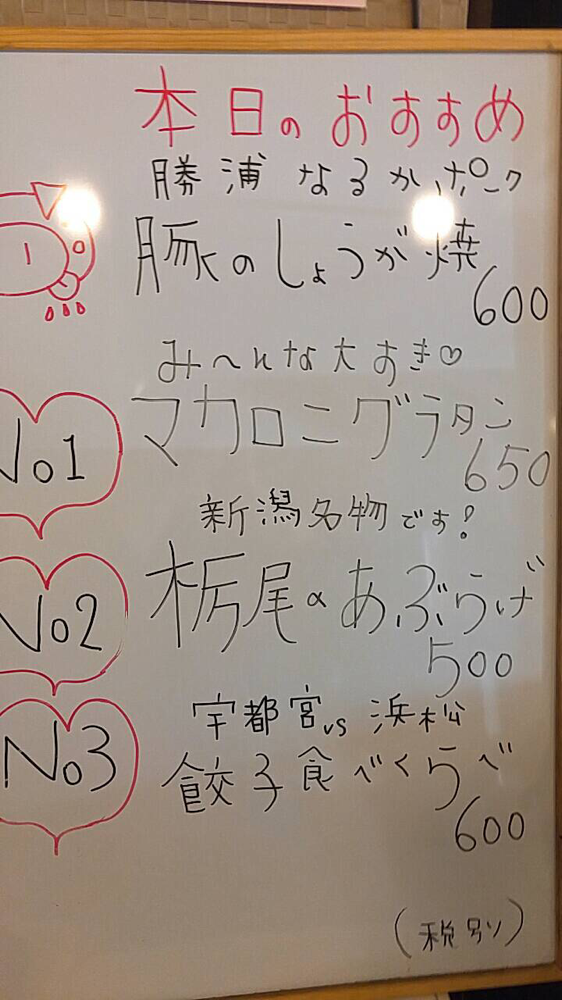 本日のおすすめ
勝浦なるかポーク
豚のしょうが焼
600
み〜んな大すき♡
No1
マカロニグラタン
650
新潟名物です!
No2
栃尾のあぶらげ
500
宇都宮vs浜松
No3
餃子食べくらべ
600
(税別)